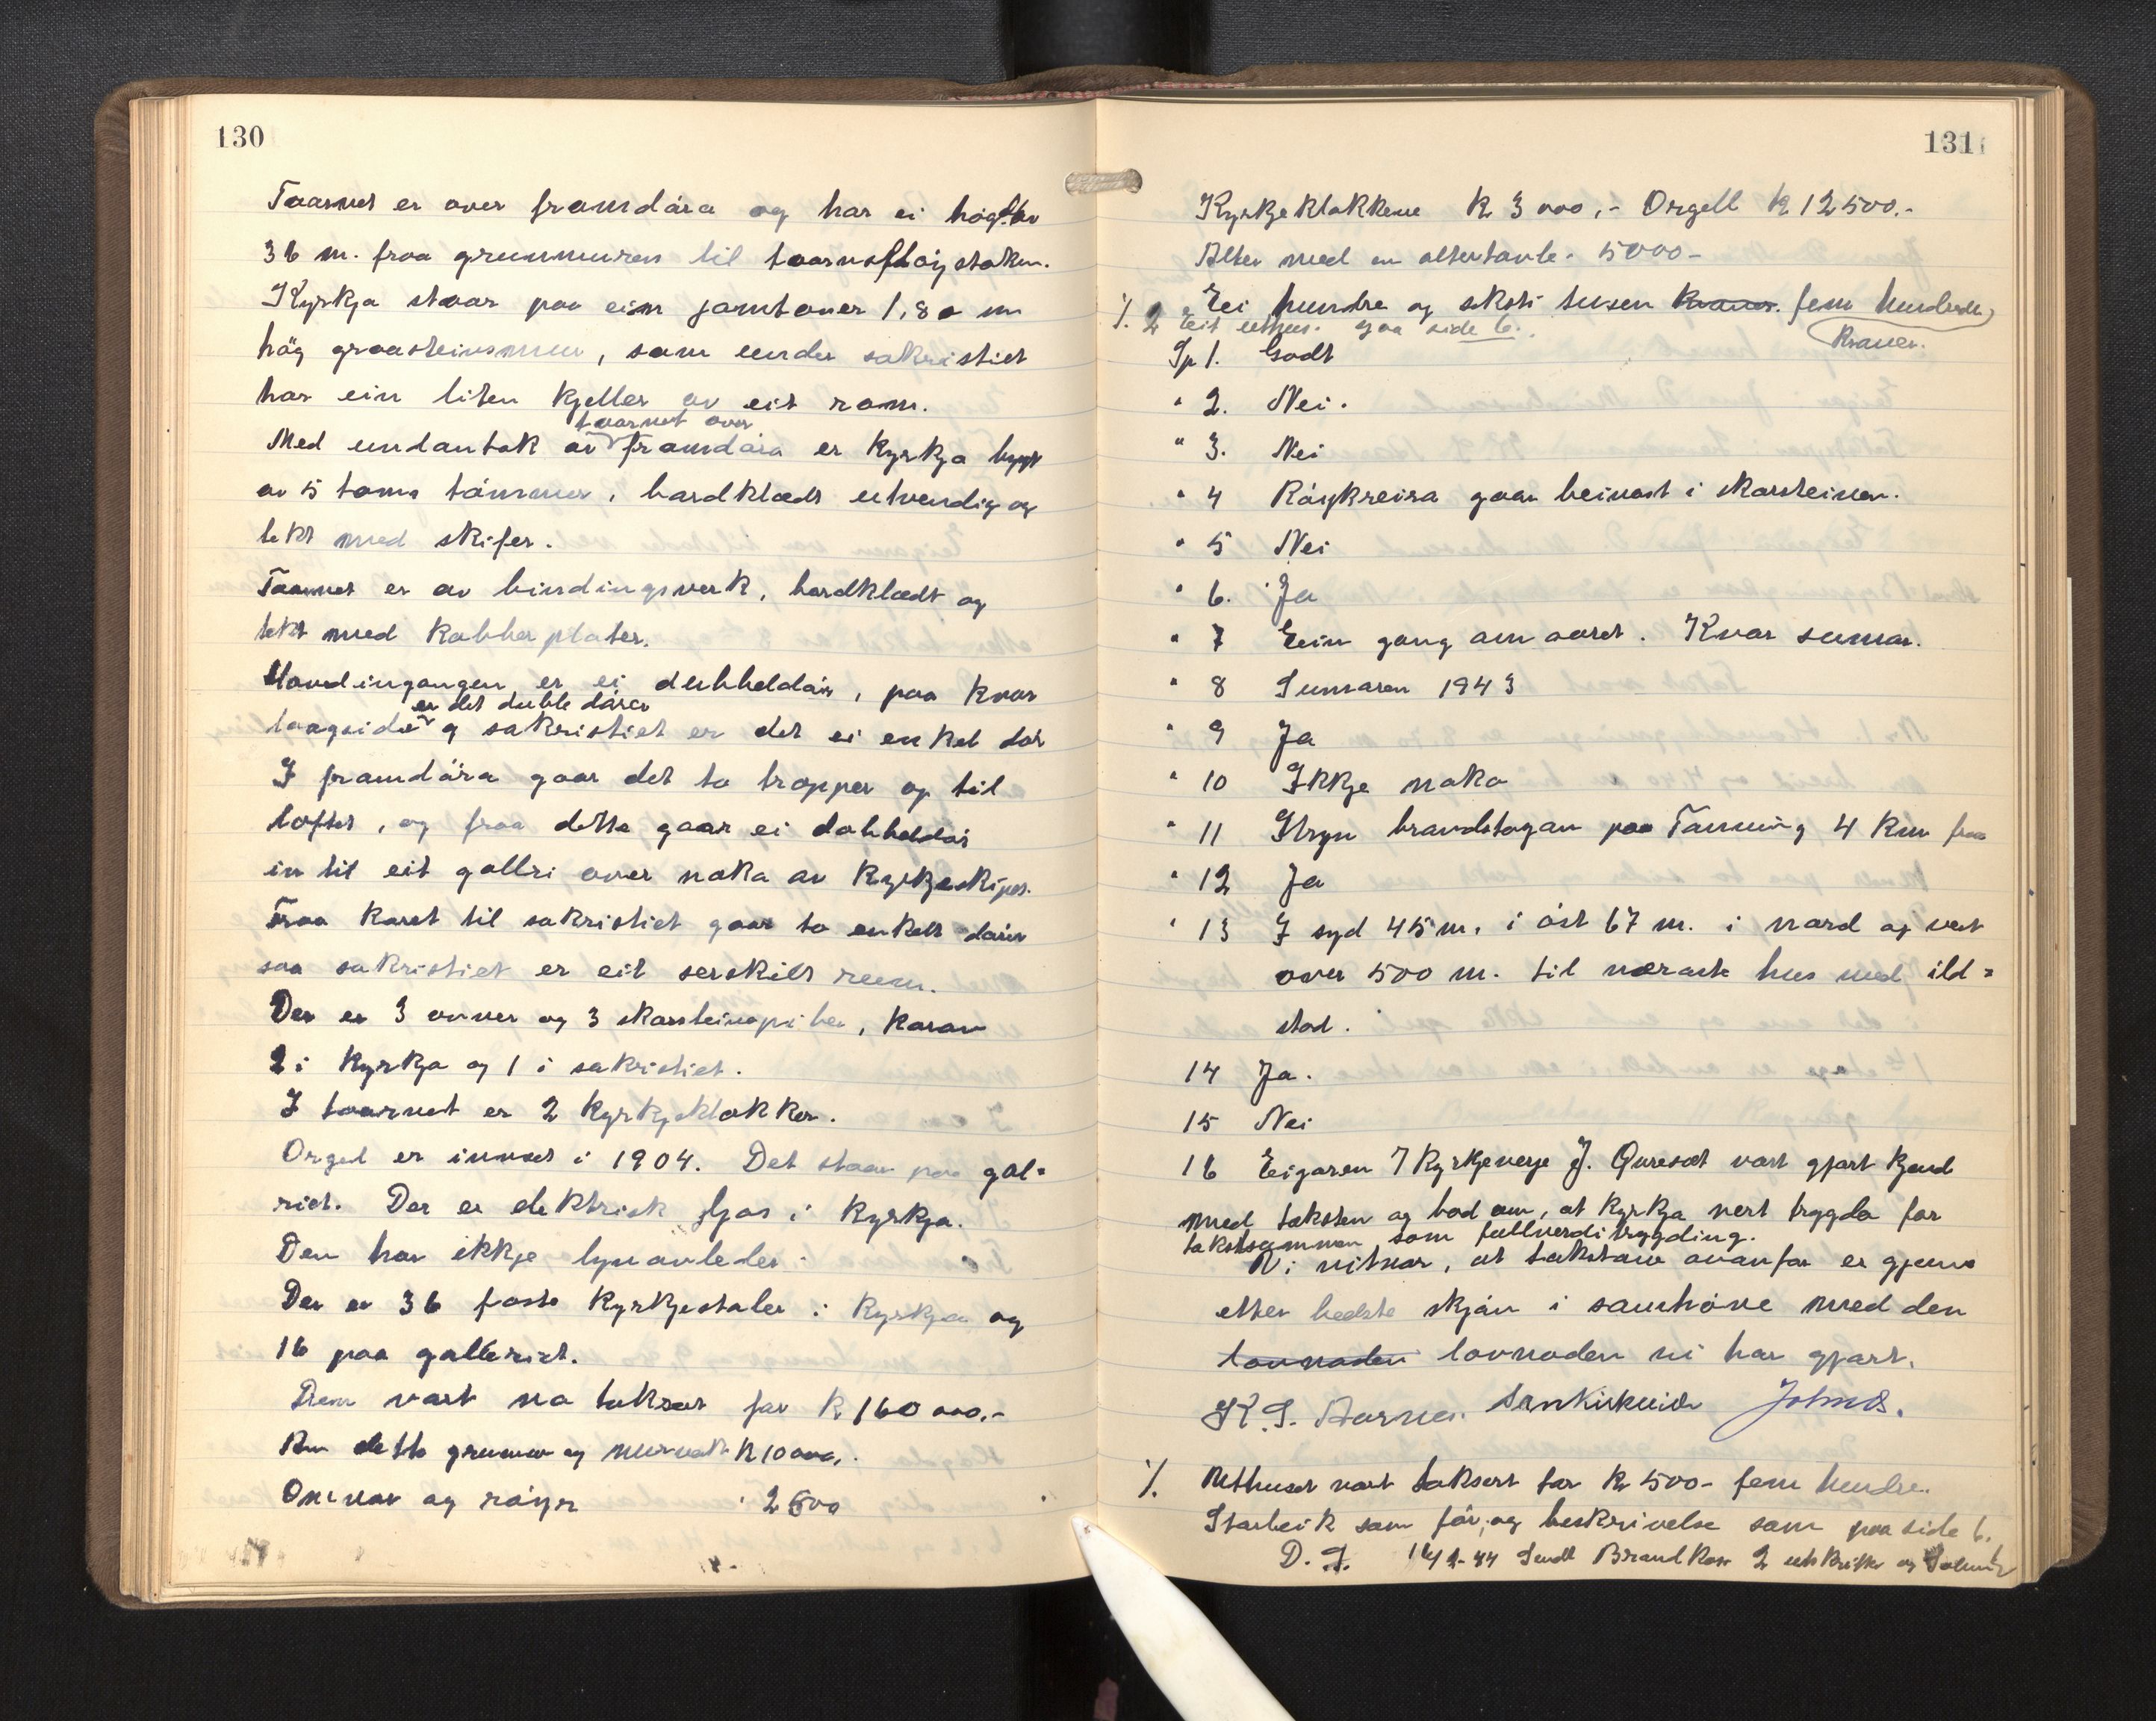 130
Taarnet er over framdøra og har ei högd av
36 m. fraa grunnmuren til taarnfløystaken.
Kyrkja staar paa ein jamtover 1,80 m
høg graasteinsmur, som under sakristiet
har ein liten kjeller av eit rom.
taarnet over
Med undantak av framdøra er kyrkja bygt
av 5 toms tömmer, bordklædt utvendig og
tekt med skifer.
Taarnet er av bindingsverk, bordklædt og
tekt med kobberplater.
Hovedingangen er ei dubbeldör, paa kvar
er det duble dörer
langside og sakristiet er det ei enkel dör
I framdöra gaar det to trapper op til
loftet, og fraa dette gaar ei dobbeldör
in til eit galleri over noko av kyrkjeskipet.
Fraa koret til sakristiet gaar to enkelt dörer
saa sakristiet er eit serskilt rum.
Der er 3 omner og 3 skorsteinspiber, korav
2 i kyrkja og 1 i sakristiet.
I taarnet er 2 kyrkjeklokker.
Orgel er innsat i 1904. Det staar paa gal=
riet. Der er elektrisk ljos i kyrkja.
Den har ikkje lynavleder.
Der er 36 faste kyrkjestoler i kyrkja og
16 paa galleriet.
Den vart no taksert for kr 160 000.-
Av dette grunnar og murverk kr 10 000,-
Omnar og röyr " 2500
131
Kyrkjeklokkene kr 3 000,- Orgell kr 12 500.-
Alter med en altertavle. 5000-
Eei hundre og seksti tusen kroner. fem hundrede
Kroner.
% 2 Eit uthus. Sjaa side 6.
Sp 1. Godt
" 2. Nei.
" 3. Nei
" 4 Röykreisa gaar beinast i skorsteinen.
" 5 Nei
" 6. Ja
" 7 Eein gang om aaret. Kvar sumar.
" 8 Sumaren 1943
" 9 Ja
" 10 Ikkje noko
" 11 Stryn brandstogan paa Tonning 4 km fraa
" 12 Ja
" 13 I syd 45 m. i öst 67 m. i nord og vest
over 500 m. til næraste hus med ild=
stad.
14 Ja.
15 Nei
16 Eigaren v/ kyrkjeverje J. Qvresæt vart gjort kjend
med taksten og bad om, at kyrkja vert trygda for
takstsummen som fullverditrygding.
Vi vitnar, at taksten ovanfor er gjevne
etter bedste skjön i samhöve med den
lovnaden lovnaden vi har gjort.
K. S. Aarnes.
% Uthuset vart taksert for kr 500- fem hundre.
Starbeik som för, og beskrivelse som paa side 6.
D. S. 14/2-44 Sendt Brandkass 2 utskrifter og